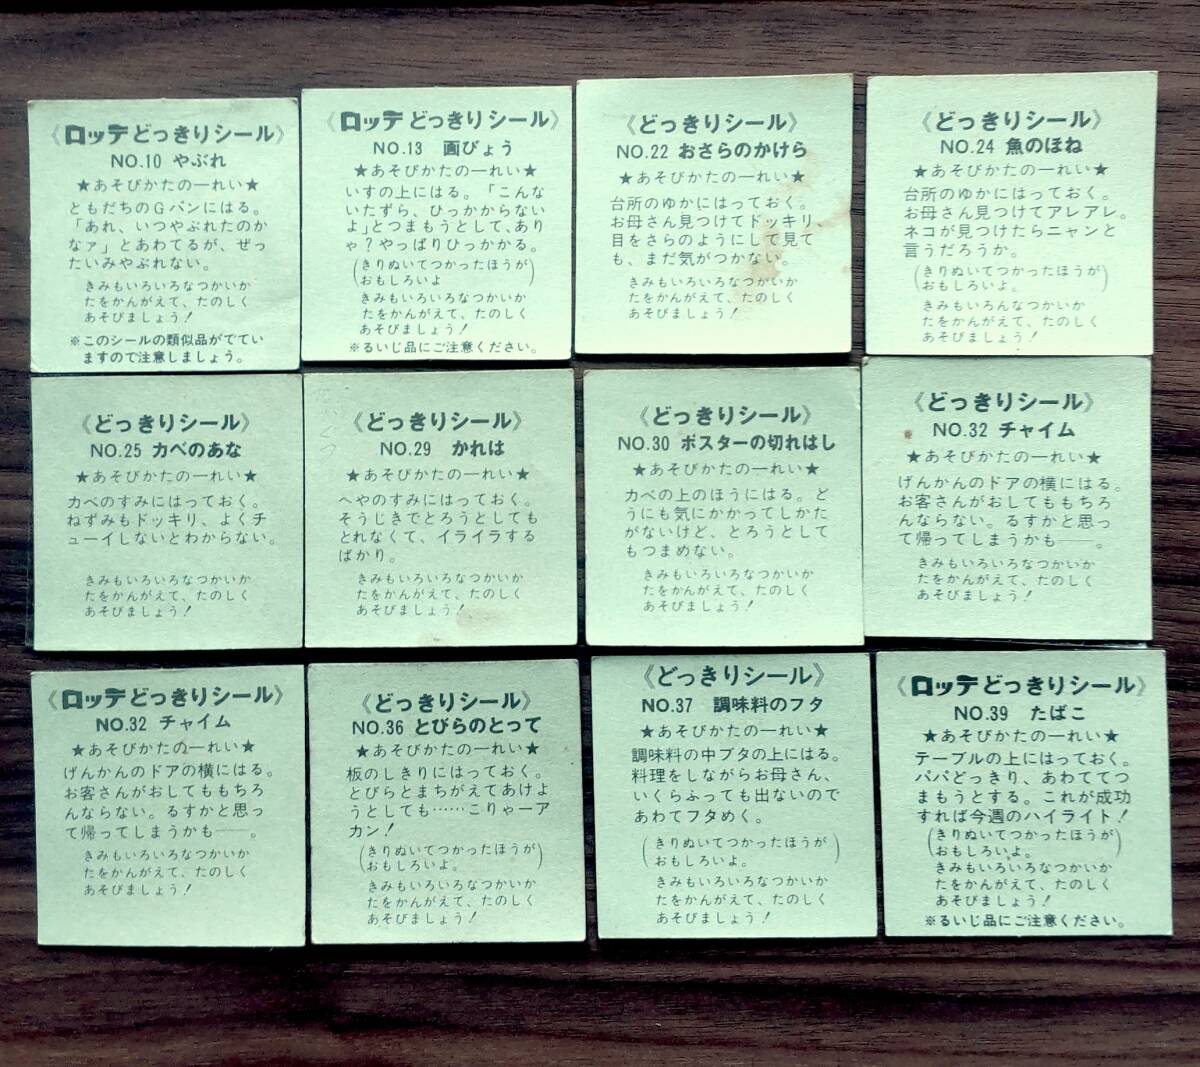 《ロッテどっきりシール》
NO.10 やぶれ
★あそびかたの一れい★
ともだちのGパンにはる。
「あれ、いつやぶれたのか
なァ」とあわてるが、ぜっ
たいみやぶれない。
きみもいろいろなつかいか
たをかんがえて、たのしく
あそびましょう!
※このシールの類似品がでてい
ますので注意しましょう。
《ロッテどっきりシール》
NO.13 画びょう
★あそびかたの一れい★
いすの上にはる。「こんな
いたずら、ひっかからない
よ」とつまもうとして、あり
ゃ?やっぱりひっかかる。
(きりぬいてつかったほうが
おもしろいよ)
きみもいろいろなつかいか
たをかんがえて、たのしく
あそびましょう!
※るいじ品にご注意ください。
《どっきりシール》
NO.22 おさらのかけら
★あそびかたの一れい★
台所のゆかにはっておく。
お母さん見つけてドッキリ、
目をさらのようにして見て
も、まだ気がつかない。
きみもいろいろなつかいか
たをかんがえて、たのしく
あそびましょう!
《どっきりシール》
NO.24 魚のほね
★あそびかたの一れい★
台所のゆかにはっておく。
お母さん見つけてアレアレ。
ネコが見つけたらニャンと
言うだろうか。
(きりぬいてつかったほうが
おもしろいよ。)
きみもいろんなつかいか
たをかんがえて、たのしく
あそびましょう!
《どっきりシール》
NO.25 カベのあな
★あそびかたの一れい★
カベのすみにはっておく。
ねずみもドッキリ、よくチ
ューイしないとわからない。
きみもいろいろなつかいか
たをかんがえて、たのしく
あそびましょう!
《どっきりシール》
NO.29 かれは
★あそびかたの一れい★
へやのすみにはっておく。
そうじきでとろうとしても
とれなくて、イライラする
ばかり。
きみもいろいろなつかいか
たをかんがえて、たのしく
あそびましょう!
《どっきりシール》
NO.30 ポスターの切れはし
★あそびかたの一れい★
カベの上のほうにはる。ど
うにも気にかかってしかた
がないけど、とろうとして
もつまめない。
きみもいろいろなつかいか
たをかんがえて、たのしく
あそびましょう!
《どっきりシール》
NO.32 チャイム
★あそびかたの一れい★
げんかんのドアの横にはる。
お客さんがおしてももちろ
んならない。るすかと思っ
て帰ってしまうかも──。
きみもいろいろなつかいか
たをかんがえて、たのしく
あそびましょう!
《ロッテどっきりシール》
NO.32 チャイム
★あそびかたの一れい★
げんかんのドアの横にはる。
お客さんがおしてももちろ
んならない。るすかと思っ
て帰ってしまうかも──。
きみもいろいろなつかいか
たをかんがえて、たのしく
あそびましょう!
《どっきりシール》
NO.36 とびらのとって
★あそびかたの一れい★
板のしきりにはっておく。
とびらとまちがえてあけよ
うとしても……こりゃーア
カン!
(きりぬいてつかったほうが
おもしろいよ。)
きみもいろいろなつかいか
たをかんがえて、たのしく
あそびましょう!
《どっきりシール》
NO.37 調味料のフタ
★あそびかたの一れい★
調味料の中ブタの上にはる。
料理をしながらお母さん、
いくらふっても出ないので
あわてフタめく。
(きりぬいてつかったほうが
おもしろいよ。)
きみもいろいろなつかいか
たをかんがえて、たのしく
あそびましょう!
《ロッテどっきりシール》
NO.39 たばこ
★あそびかたの一れい★
テーブルの上にはっておく。
パパどっきり、あわててつ
まもうとする。これが成功
すれば今週のハイライト!
(きりぬいてつかったほうが
おもしろいよ。)
きみもいろいろなつかいか
たをかんがえて、たのしく
あそびましょう!
※るいじ品にご注意ください。